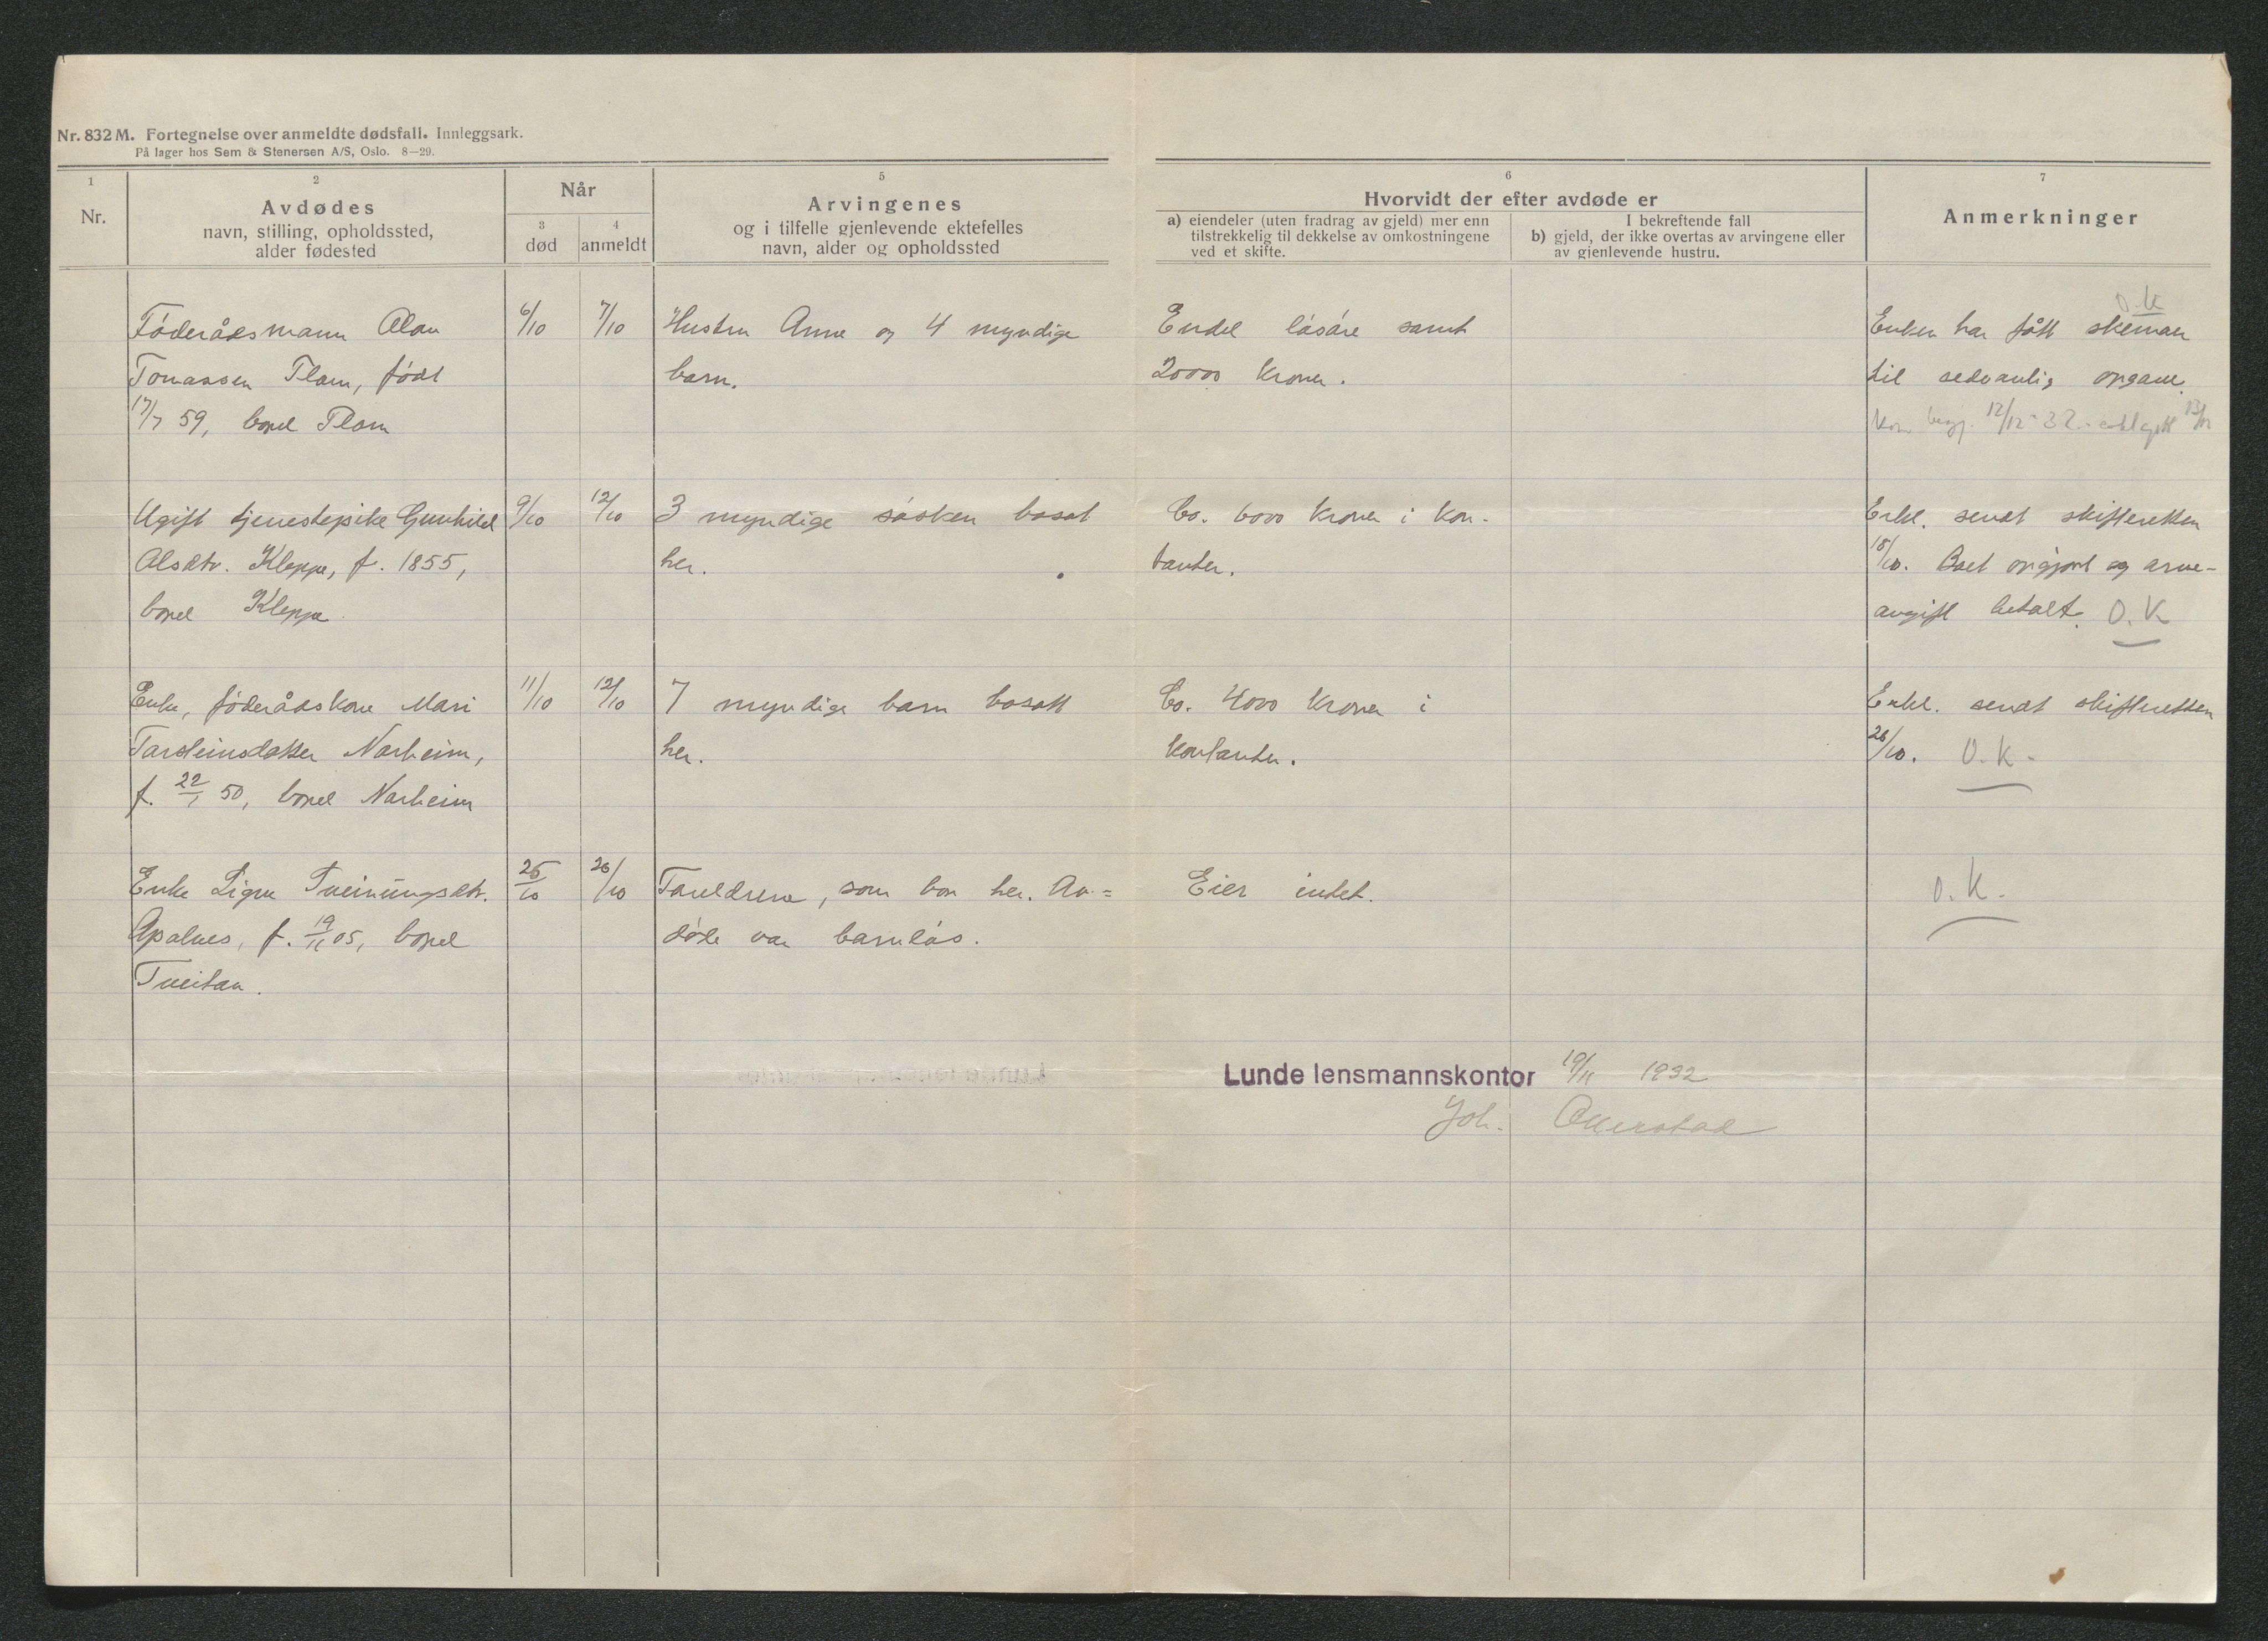 Nr. 832 M. Fortegnelse over anmeldte dødsfall. Innleggsark.
På lager hos Sem & Stenersen A/S, Oslo. 8—29.
1
Nr.
2
Avdødes
navn, stilling, opholdssted,
alder fødested
Når
3
død
4
anmeldt
5
Arvingenes
og i tilfelle gjenlevende ektefelles
navn, alder og opholdssted
6
Hvorvidt der efter avdøde er
a) eiendeler (uten fradrag av gjeld) mer enn
tilstrekkelig til dekkelse av omkostningene
ved et skifte.
I bekreftende fall
b) gjeld, der ikke overtas av arvingene eller
av gjenlevende hustru.
7
Anmerkninger
Føderådsmann Olav
Tomassen Flom, født
17/7 59, bopel Flom
6/10
7/10
Hustru Anne og 4 myndige
barn.
Endel løsøre samt
20000 kroner.
O.K
Enken har fått skemaer
til sedvanlig opgave.
12/12-32 13/12
Ugift tjenestepike Gunhild
Olsdtr. Kleppe, f. 1855,
bopel Kleppe
9/10
12/10
3 myndige søsken bosat
her.
Co. 6000 kroner i kon-
tanter.
Erkl. sendt skifteretten
18/10. Boet opgjort og arve-
avgift betalt. O.K
Enke, føderådskone Mari
Tarsteinsdatter Norheim,
f. 22/1 50, bopel Norheim
11/10
12/10
7 myndige barn bosatt
her.
Co. 4000 kroner i
kontanter.
Erkl. sendt skifteretten
26/10. O.K.
Enke Signe Tveinungsdtr.
Apalnes, f. 19/11 05, bopel
Tveitan.
25/10
26/10
Foreldrene, som bor her. Av-
døde var barnløs.
Eier intet.
O.K.
Lunde lensmannskontor 19/11 1932
Joh. Akerstad